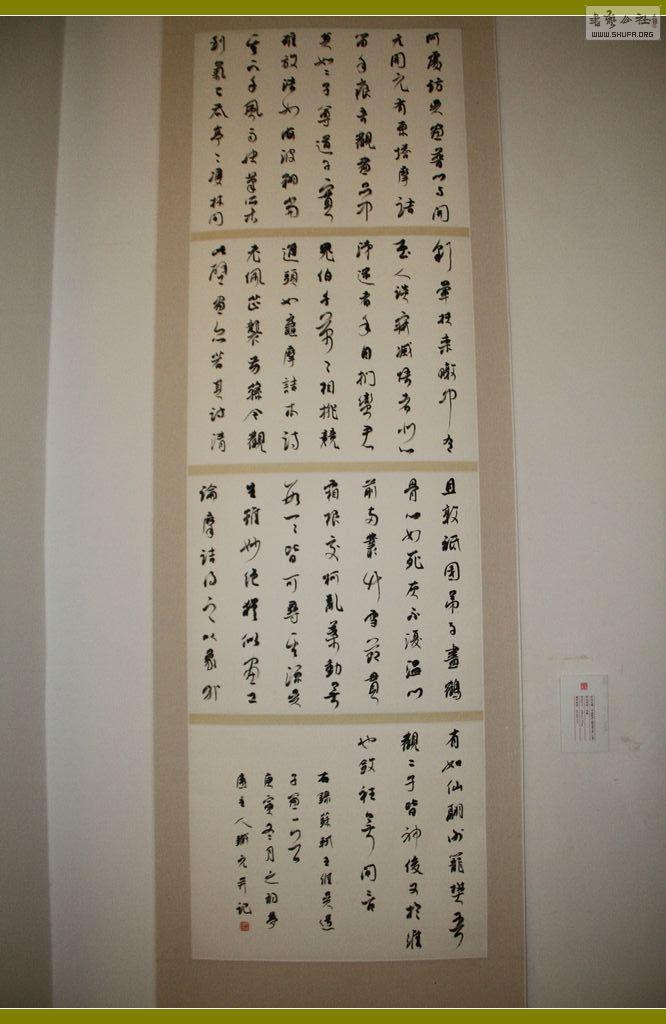 書藝公社
WWW.SHUFA.ORG
何處訪吳畫普門与開
元開元有東塔摩詰
留手痕吾觀畫品中
莫如二子尊道子實
雄放浩如海波翻當
其下手風雨快筆所未
到氣已吞亭〻雙林間
彩暈扶桑暾中有
至人談寂滅悟者悲
涕迷者手自捫蠻君
鬼伯千萬〻相排競
進頭如黿摩詰本詩
老佩芷襲芳蓀今觀
此壁畫亦若其詩清
且敦祇園弟子盡鶴
骨心如死灰不復溫門
前兩叢竹雪節貫
霜根交柯亂葉動無
數一一皆可尋其源吳
生雖妙絕猶似畫工
論摩詰得之以象外
有如仙翮謝籠樊吾
觀二子皆神俊又於維
也斂衽無間言
右錄蘇軾王維吳道
子畫一首
庚寅冬月之初
主人 元并記